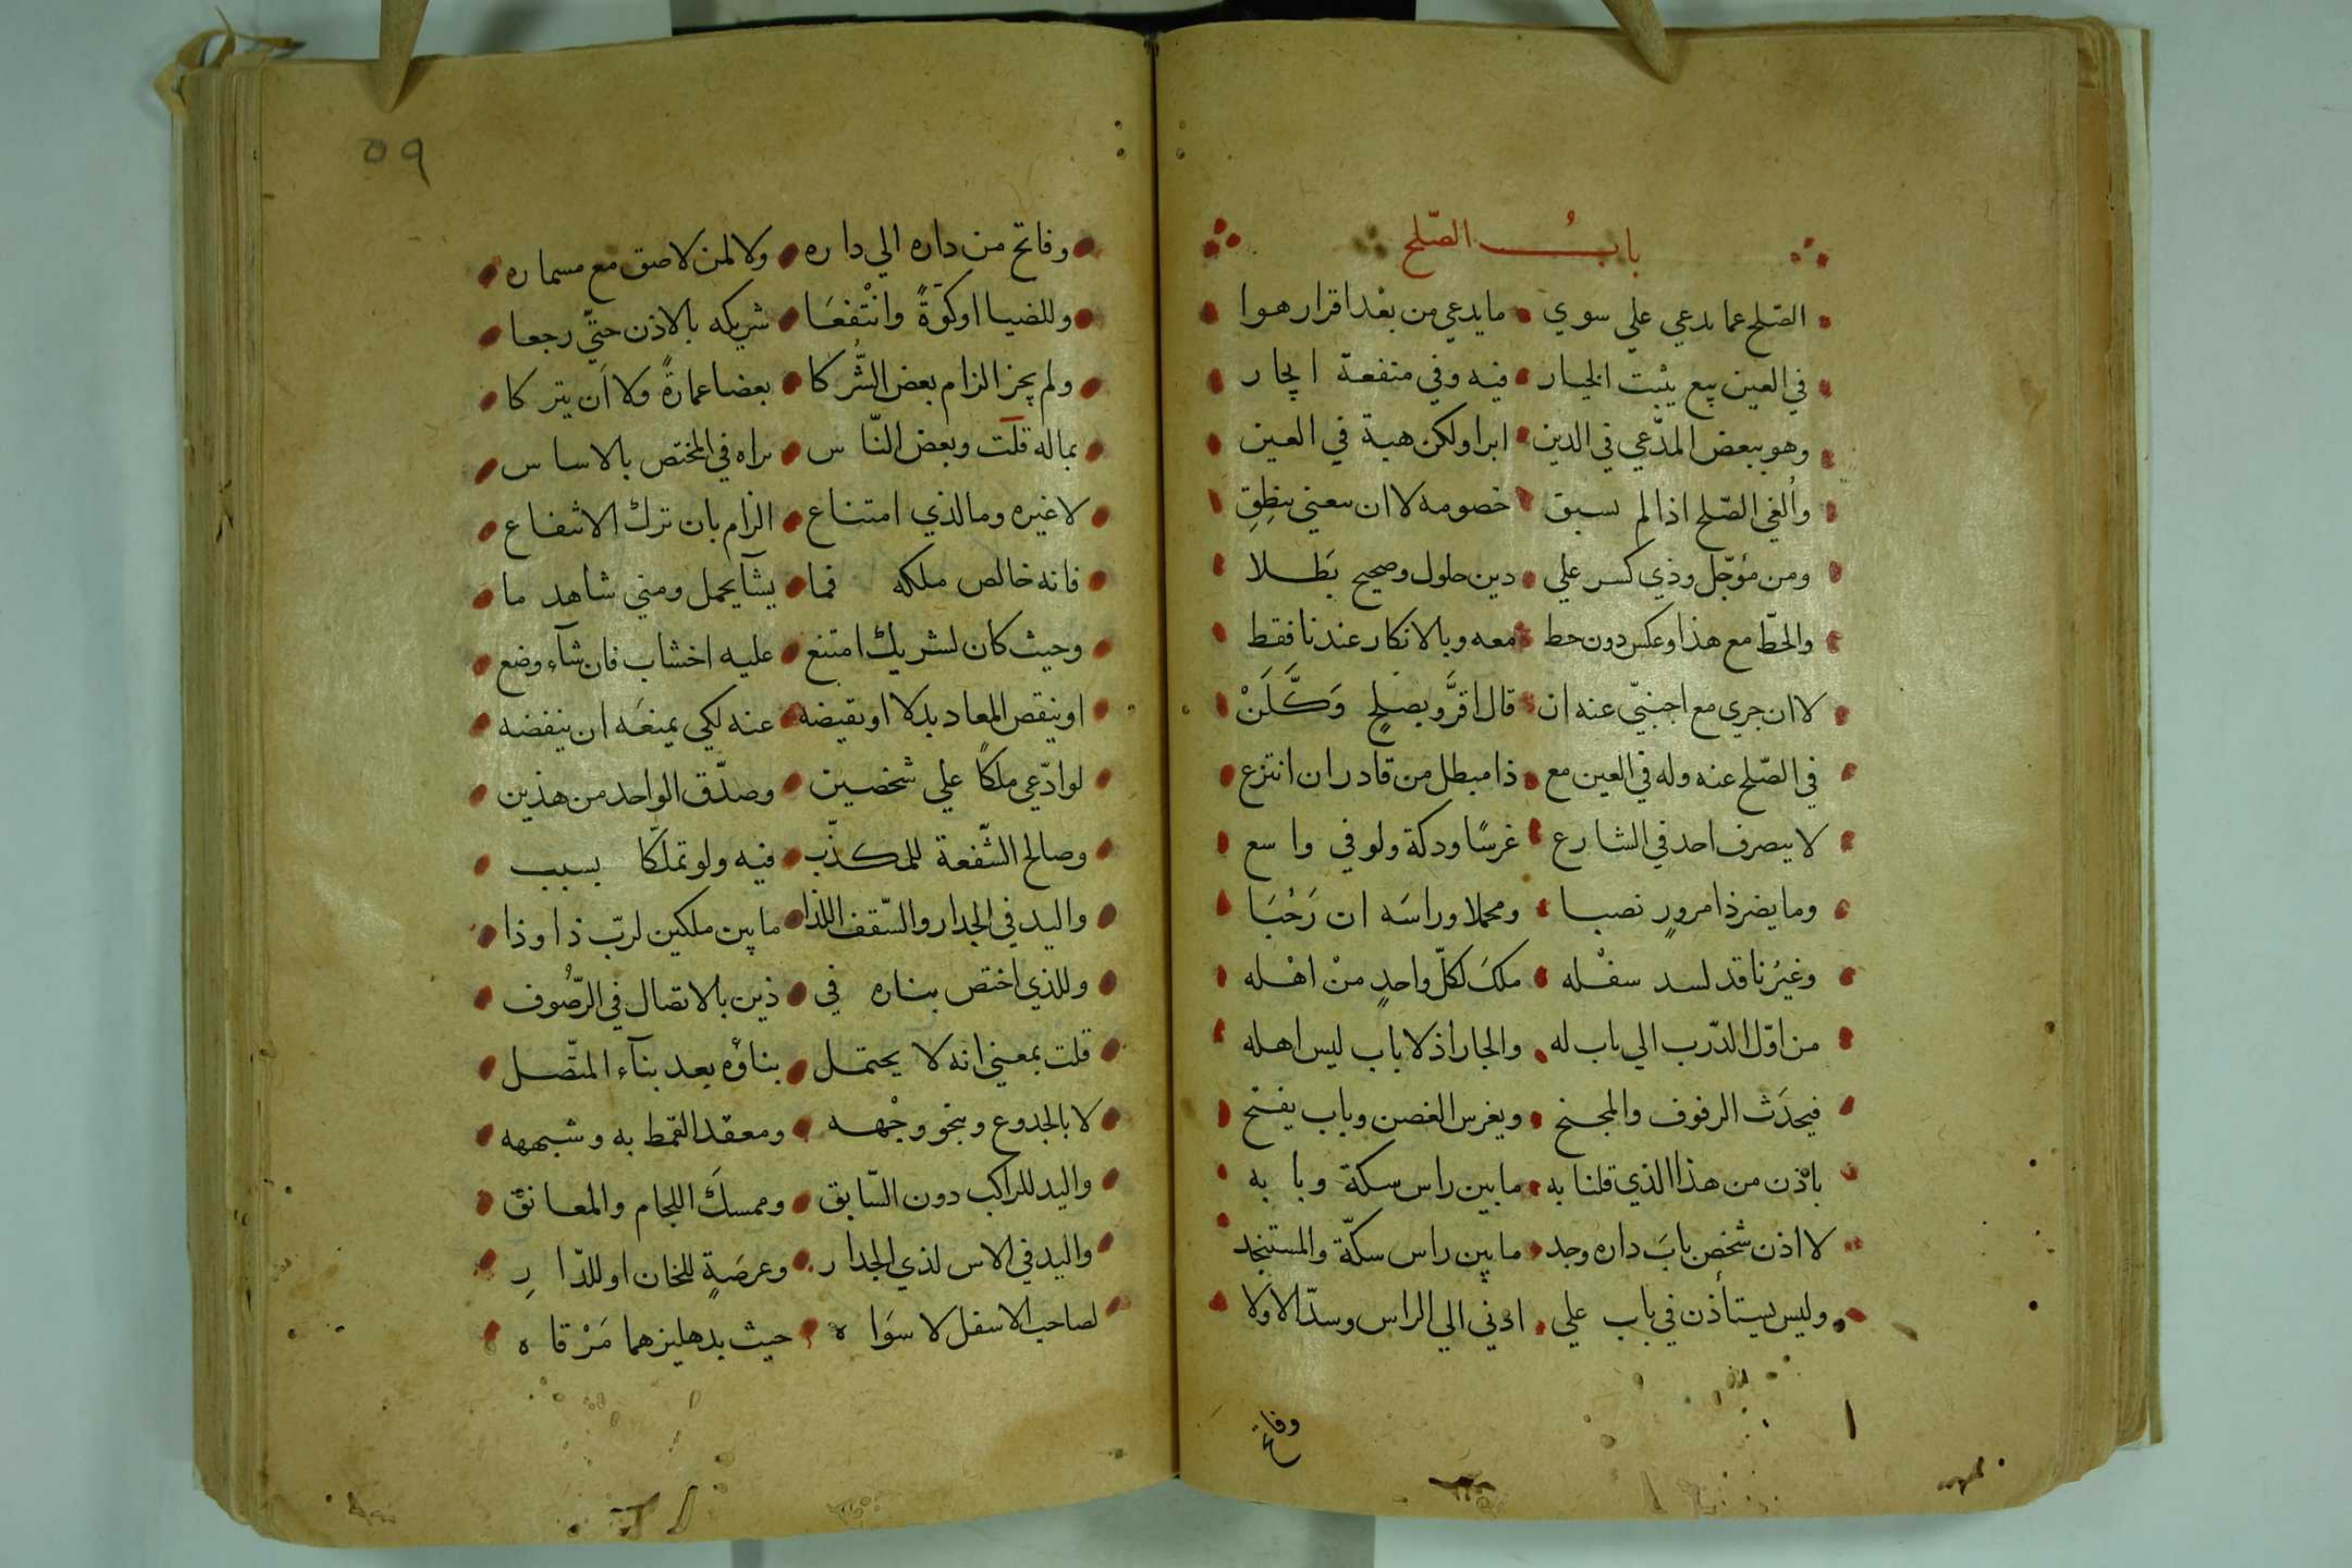 باب الصّلح
الصّلح عما يدعي علي سوي ما يدعي من بعْد اقرار هوا
في العين بيع يثبت الخيار فيه وفي منفعة ايجار
وهو ببعض المدّعي في الدين ابرا ولكن هبة في العين
وأُلغي الصّلح اذا لم يسبق خصومه لا ان بعيني ينطِقِ
ومن مؤجّل وذي كسر علي دين حلول وصحيح بَطلا
والحَطّ مع هذا وعكس دون حط معه وبالانكار عندنا فقط
لا ان جري مع اجنبيّ عنه ان قال اقرَّ وبصلحٍ وَكَّلَنْ
في الصّلح عنه وله في العين مع ذا مبطل من قادر ان انتزع
لا يصرف احد في الشارع غرسًا ودكة ولو في واسع
وما يضر ذا مرورٍ نصبا ومحملا وراسَه ان رَحُبَا
وغيرُ نافد لسد سفْله ملك لكلّ واحدٍ منْ اهْله
من اوّل الدّرب الي باب له والجار اذ لا باب ليس اهله
فيحدَث الرفوف والمجنح ويغرس الغصن وباب يفتح
باذْن من هذا الذي قلنا به ما بين راس سكة وبا به
لا اذن شخص بابَ داره وجد ما بين راس سكّة والمستنجد
وليس يستأذن في باب علي ادني الي الراس وسدّ الاوّلا
وفاتح
٥٩
وفاتح من داره الي داره ولا لمن لاصق مع مسماره
وللضيا او كوّةً وانْتفعَا شريكه بالاذن حتيّ رجعا
ولم يجز الزام بعض الشُّركا بعضا عمارةً ولا اَن يتركا
بماله قلت وبعض النّاس يراه في المختص بالاساس
لا غيره وما لذي امتناع الزام بان ترك الانتفاع
فانه خالص ملكه فما يشا يحمل ومني شاهد ما
وحيث كان لشريك امتنع عليه اخشاب فان شآء وضع
او ينقص المعاد بدلا او بقيضه عنه لكي يمنعَه ان ينفضه
لو ادّعي ملكاً علي شخصين وصدّق الواحد من هذين
وصالح الشّفعة للمكذّب فيه ولو تملّكا بسبب
واليد في الجدار والسّقف اللذا ما بين ملكين لربّ ذا وذا
وللذي اختص بناره في ذين بالاتصال في الرّصُوف
قلت بمعني انه لا يحتمل بناؤه بعد بنآء المتّصل
لا بالجدوع وبنحو وجْهه ومعقد القمط به وشبهه
واليد للراكب دون السّابق وممسكَ اللجام والمعانق
واليد في الاس لذي الجدار وعرصَةٍ للخان او للدّارِ
لصاحب الاسفل لا سوَاه حيث بدهليزهما مَرْقاه